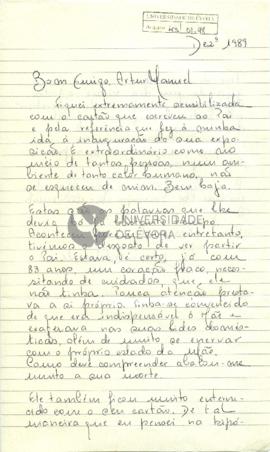 UNIVERSIDADE DE ÉVORA
Dez° 1989
Bom Amigo Artur Manuel
Fiquei extremamente sensibilizada
com o cartão que escreveu ao Pai
e pela referência que fez à minha
ida à inauguração da sua expo-
sição. É extraordinário como no
meio de tantas pessoas, num am-
biente de tanto calor humano, não
se esqueceu de mim. Bem haja.
Estas palavras que lhe
devia há tempo.
Aconteceu entretanto,
tivemos o desgosto de ver partir
o Pai. Estava, é certo, já com
83 anos, um coração fraco, neces-
sitando de cuidados, que ele
não tinha. Pouca atenção presta-
va a si próprio. Tinha-se convencido
de que era indispensável à Mãe e
exagerava nas suas lides domés-
ticas, além de muito se enervar
com o próprio estado da Mãe.
Como deve compreender abalou-me
muito a sua morte.
Ele também ficou muito enterne-
cido com o seu cartão. De tal
maneira que eu pensei na hipó-
UNIVERSIDADE
DE ÉVORA